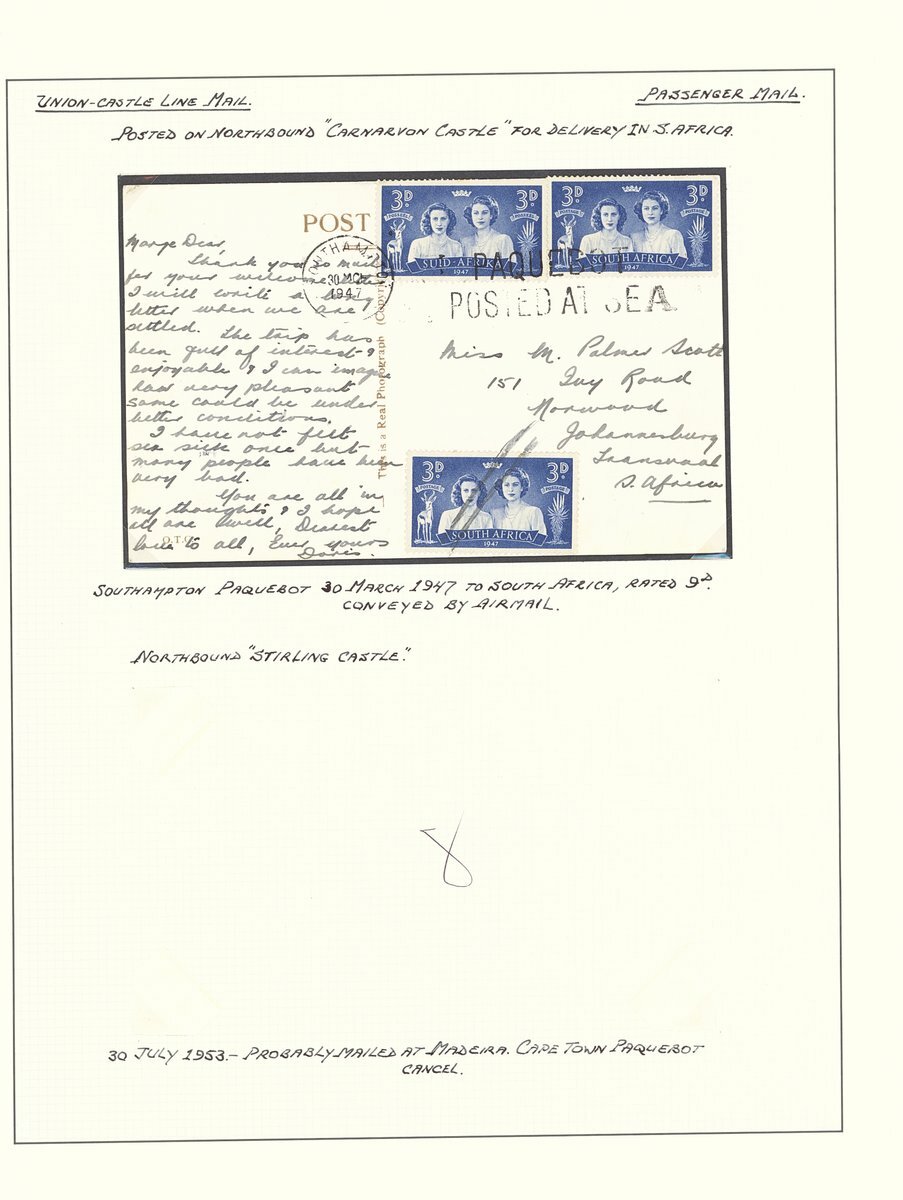 UNION-CASTLE LINE MAIL.
PASSENGER MAIL.
POSTED ON NORTHBOUND "CARNARVON CASTLE" FOR DELIVERY IN S. AFRICA.
POST
3D 3D
POSSEEL POSSEEL
SUID-AFRIKA
1947
3D 3D
POSTAGE POSTAGE
SOUTH AFRICA
1947
SOUTHAMPTON
30 MCH
1947
PAQUEBOT
POSTED AT SEA
Marge Dear,
Thank you so much
for your welcome
I will write a long
letter when we are
settled. The trip has
been full of interest &
enjoyable & I can imagine
how very pleasant
same could be under
better conditions.
I have not felt
sea sick once but
many people have been
very bad.
You are all in
my thoughts & I hope
all are well, Dearest
love to all, Ever yours
Doris.
This is a Real Photograph (Copyright
O.T.C.
Miss M. Palmer Scott
151 Ivy Road
Norwood
Johannesburg
Transvaal
S. Africa
3D 3D
POSTAGE POSTAGE
SOUTH AFRICA
1947
SOUTHAMPTON PAQUEBOT 30 MARCH 1947 TO SOUTH AFRICA, RATED 9D.
CONVEYED BY AIRMAIL.
NORTHBOUND "STIRLING CASTLE".
8
30 JULY 1953.- PROBABLY MAILED AT MADEIRA. CAPE TOWN PAQUEBOT
CANCEL.